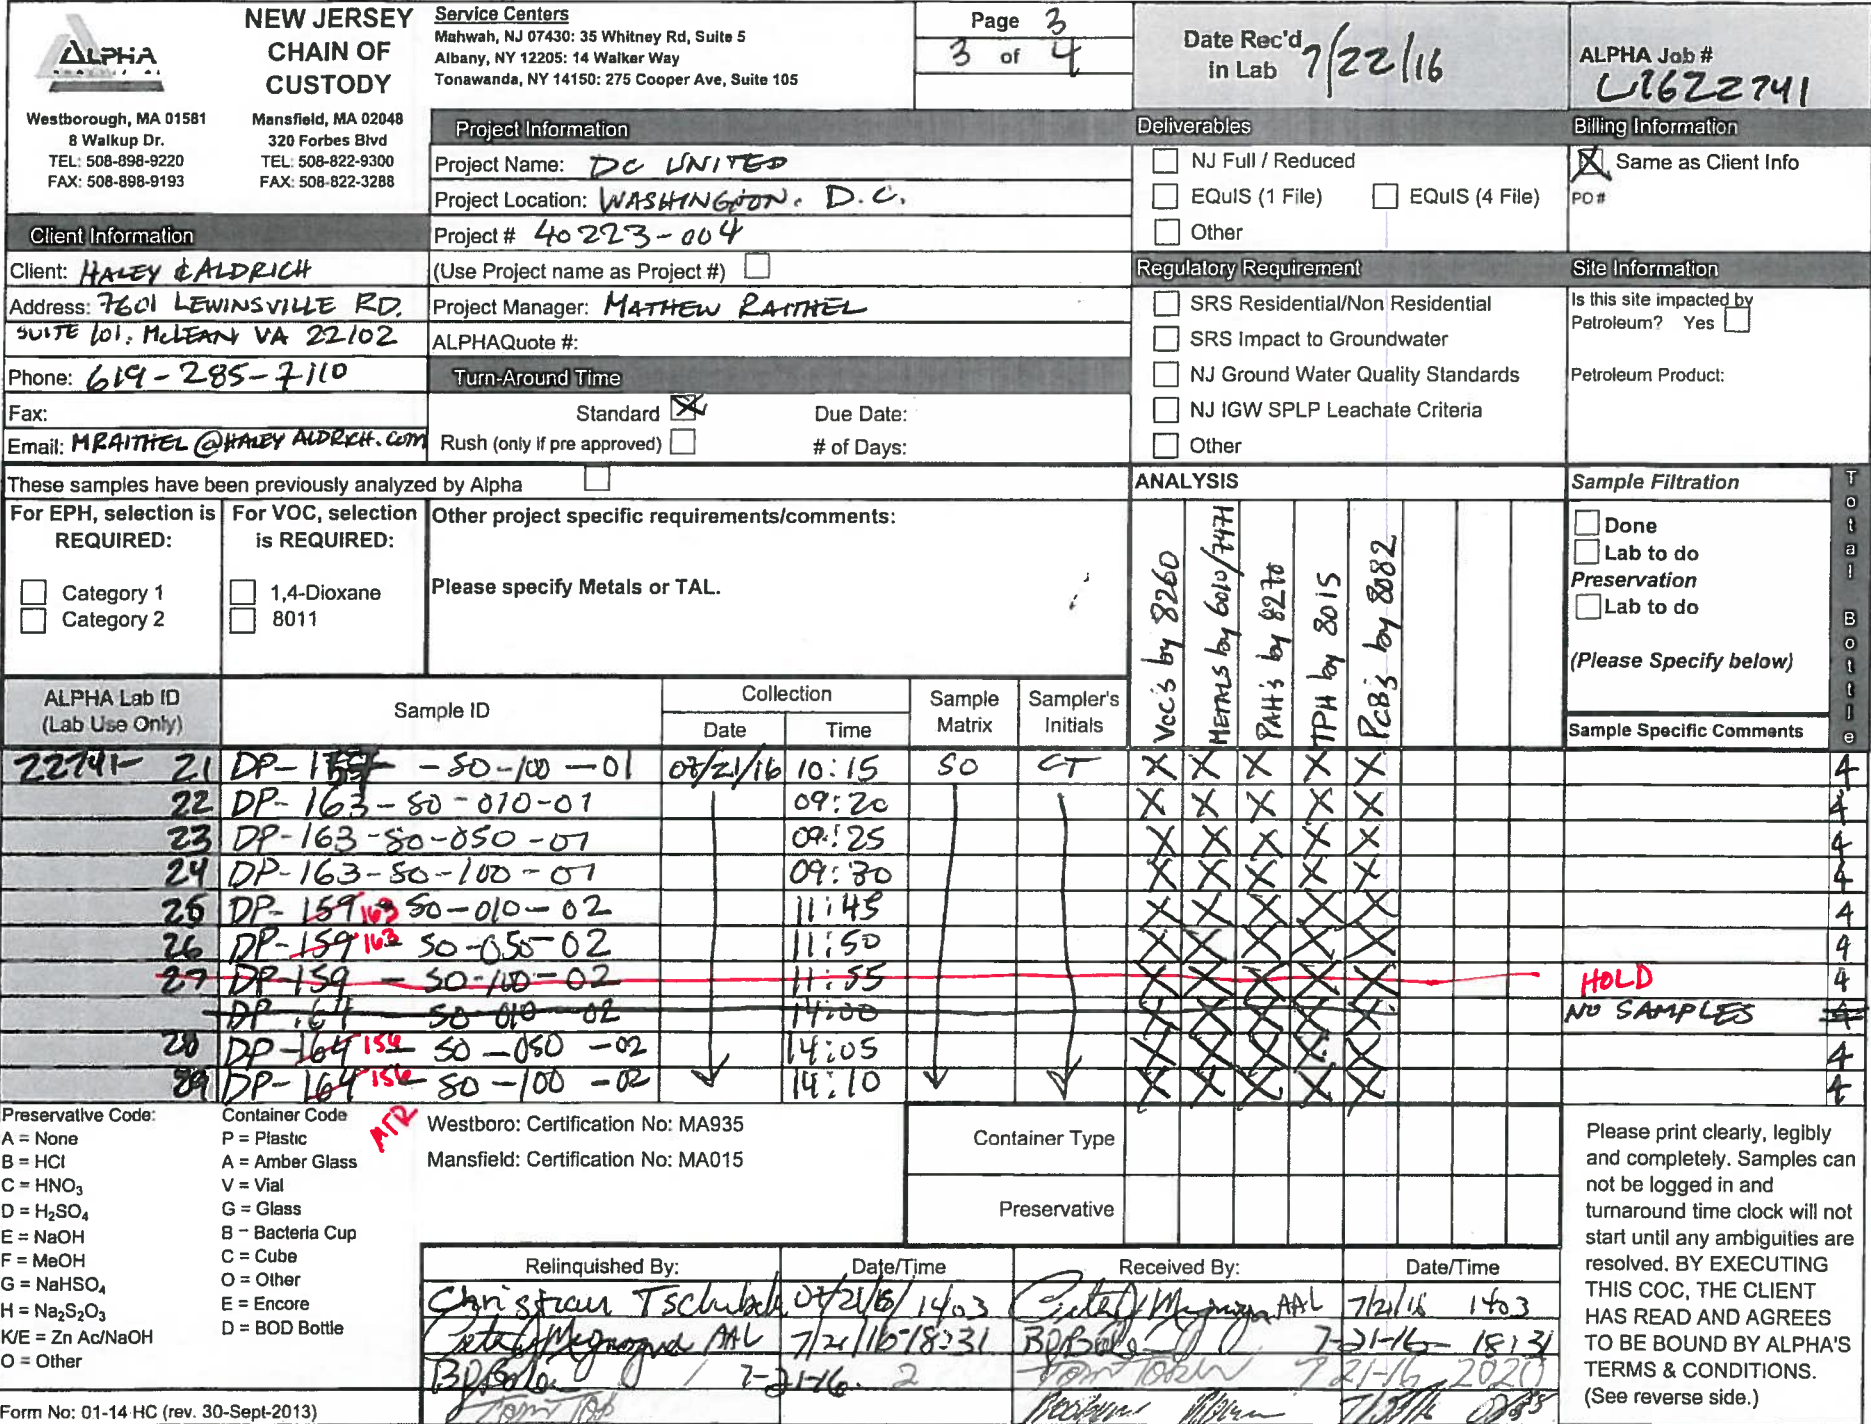 ALPHA
NEW JERSEY
CHAIN OF
CUSTODY
Westborough, MA 01581
8 Walkup Dr.
TEL: 508-898-9220
FAX: 508-898-9193
Mansfield, MA 02048
320 Forbes Blvd
TEL: 508-822-9300
FAX: 508-822-3288
Service Centers
Mahwah, NJ 07430: 35 Whitney Rd, Suite 5
Albany, NY 12205: 14 Walker Way
Tonawanda, NY 14150: 275 Cooper Ave, Suite 105
Page 3
3 of 4
Date Rec'd
in Lab 7/22/16
ALPHA Job #
L1622741
Client Information
Client: HALEY & ALDRICH
Address: 7601 LEWINSVILLE RD.
SUITE 101, McLEAN VA 22102
Phone: 619-285-7110
Fax:
Email: MRAITHEL@HALEYALDRICH.COM
Project Information
Project Name: DC UNITED
Project Location: WASHINGTON, D.C.
Project # 40223-004
(Use Project name as Project #)
Project Manager: MATHEW RAITHEL
ALPHAQuote #:
Turn-Around Time
Standard X Due Date:
Rush (only if pre approved) # of Days:
Deliverables
NJ Full / Reduced
EQuIS (1 File) EQuIS (4 File)
Other
Regulatory Requirement
SRS Residential/Non Residential
SRS Impact to Groundwater
NJ Ground Water Quality Standards
NJ IGW SPLP Leachate Criteria
Other
Billing Information
X Same as Client Info
PO #
Site Information
Is this site impacted by
Petroleum? Yes
Petroleum Product:
These samples have been previously analyzed by Alpha
For EPH, selection is
REQUIRED:
Category 1
Category 2
For VOC, selection
is REQUIRED:
1,4-Dioxane
8011
Other project specific requirements/comments:
Please specify Metals or TAL.
ANALYSIS
VOC's by 8260
METALS by 6010/7471
PAH's by 8270
TPH by 8015
PCB's by 8082
Sample Filtration
Done
Lab to do
Preservation
Lab to do
(Please Specify below)
Total Bottle
ALPHA Lab ID
(Lab Use Only)
Sample ID
Collection
Date Time
Sample
Matrix
Sampler's
Initials
Sample Specific Comments
22741- 21 DP- -SO-100-01 07/21/16 10:15 SO CT X X X X X 4
22 DP-163-SO-010-01 09:20 X X X X X 4
23 DP-163-SO-050-01 09:25 X X X X X 4
24 DP-163-SO-100-01 09:30 X X X X X 4
25 DP-159 163 SO-010-02 11:45 X X X X X 4
26 DP-159 163 SO-050-02 11:50 X X X X X 4
27 DP-159 - SO-100-02 11:55 X X X X X HOLD 4
DP-164 SO-010-02 14:00 X X X X X NO SAMPLES 4
28 DP-164 156 - SO-050-02 14:05 X X X X X 4
29 DP-164 156 - SO-100-02 14:10 X X X X X 4
MTR
Preservative Code:
A = None
B = HCl
C = HNO3
D = H2SO4
E = NaOH
F = MeOH
G = NaHSO4
H = Na2S2O3
K/E = Zn Ac/NaOH
O = Other
Container Code
P = Plastic
A = Amber Glass
V = Vial
G = Glass
B - Bacteria Cup
C = Cube
O = Other
E = Encore
D = BOD Bottle
Westboro: Certification No: MA935
Mansfield: Certification No: MA015
Container Type
Preservative
Relinquished By: Date/Time Received By: Date/Time
Christian 07/21/16/ 1403 AAL 7/21/16 1403
AAL 7/21/16-18:31 7-21-16- 18:31
7-21-16. 7 21-16 2020
Please print clearly, legibly
and completely. Samples can
not be logged in and
turnaround time clock will not
start until any ambiguities are
resolved. BY EXECUTING
THIS COC, THE CLIENT
HAS READ AND AGREES
TO BE BOUND BY ALPHA'S
TERMS & CONDITIONS.
(See reverse side.)
Form No: 01-14 HC (rev. 30-Sept-2013)